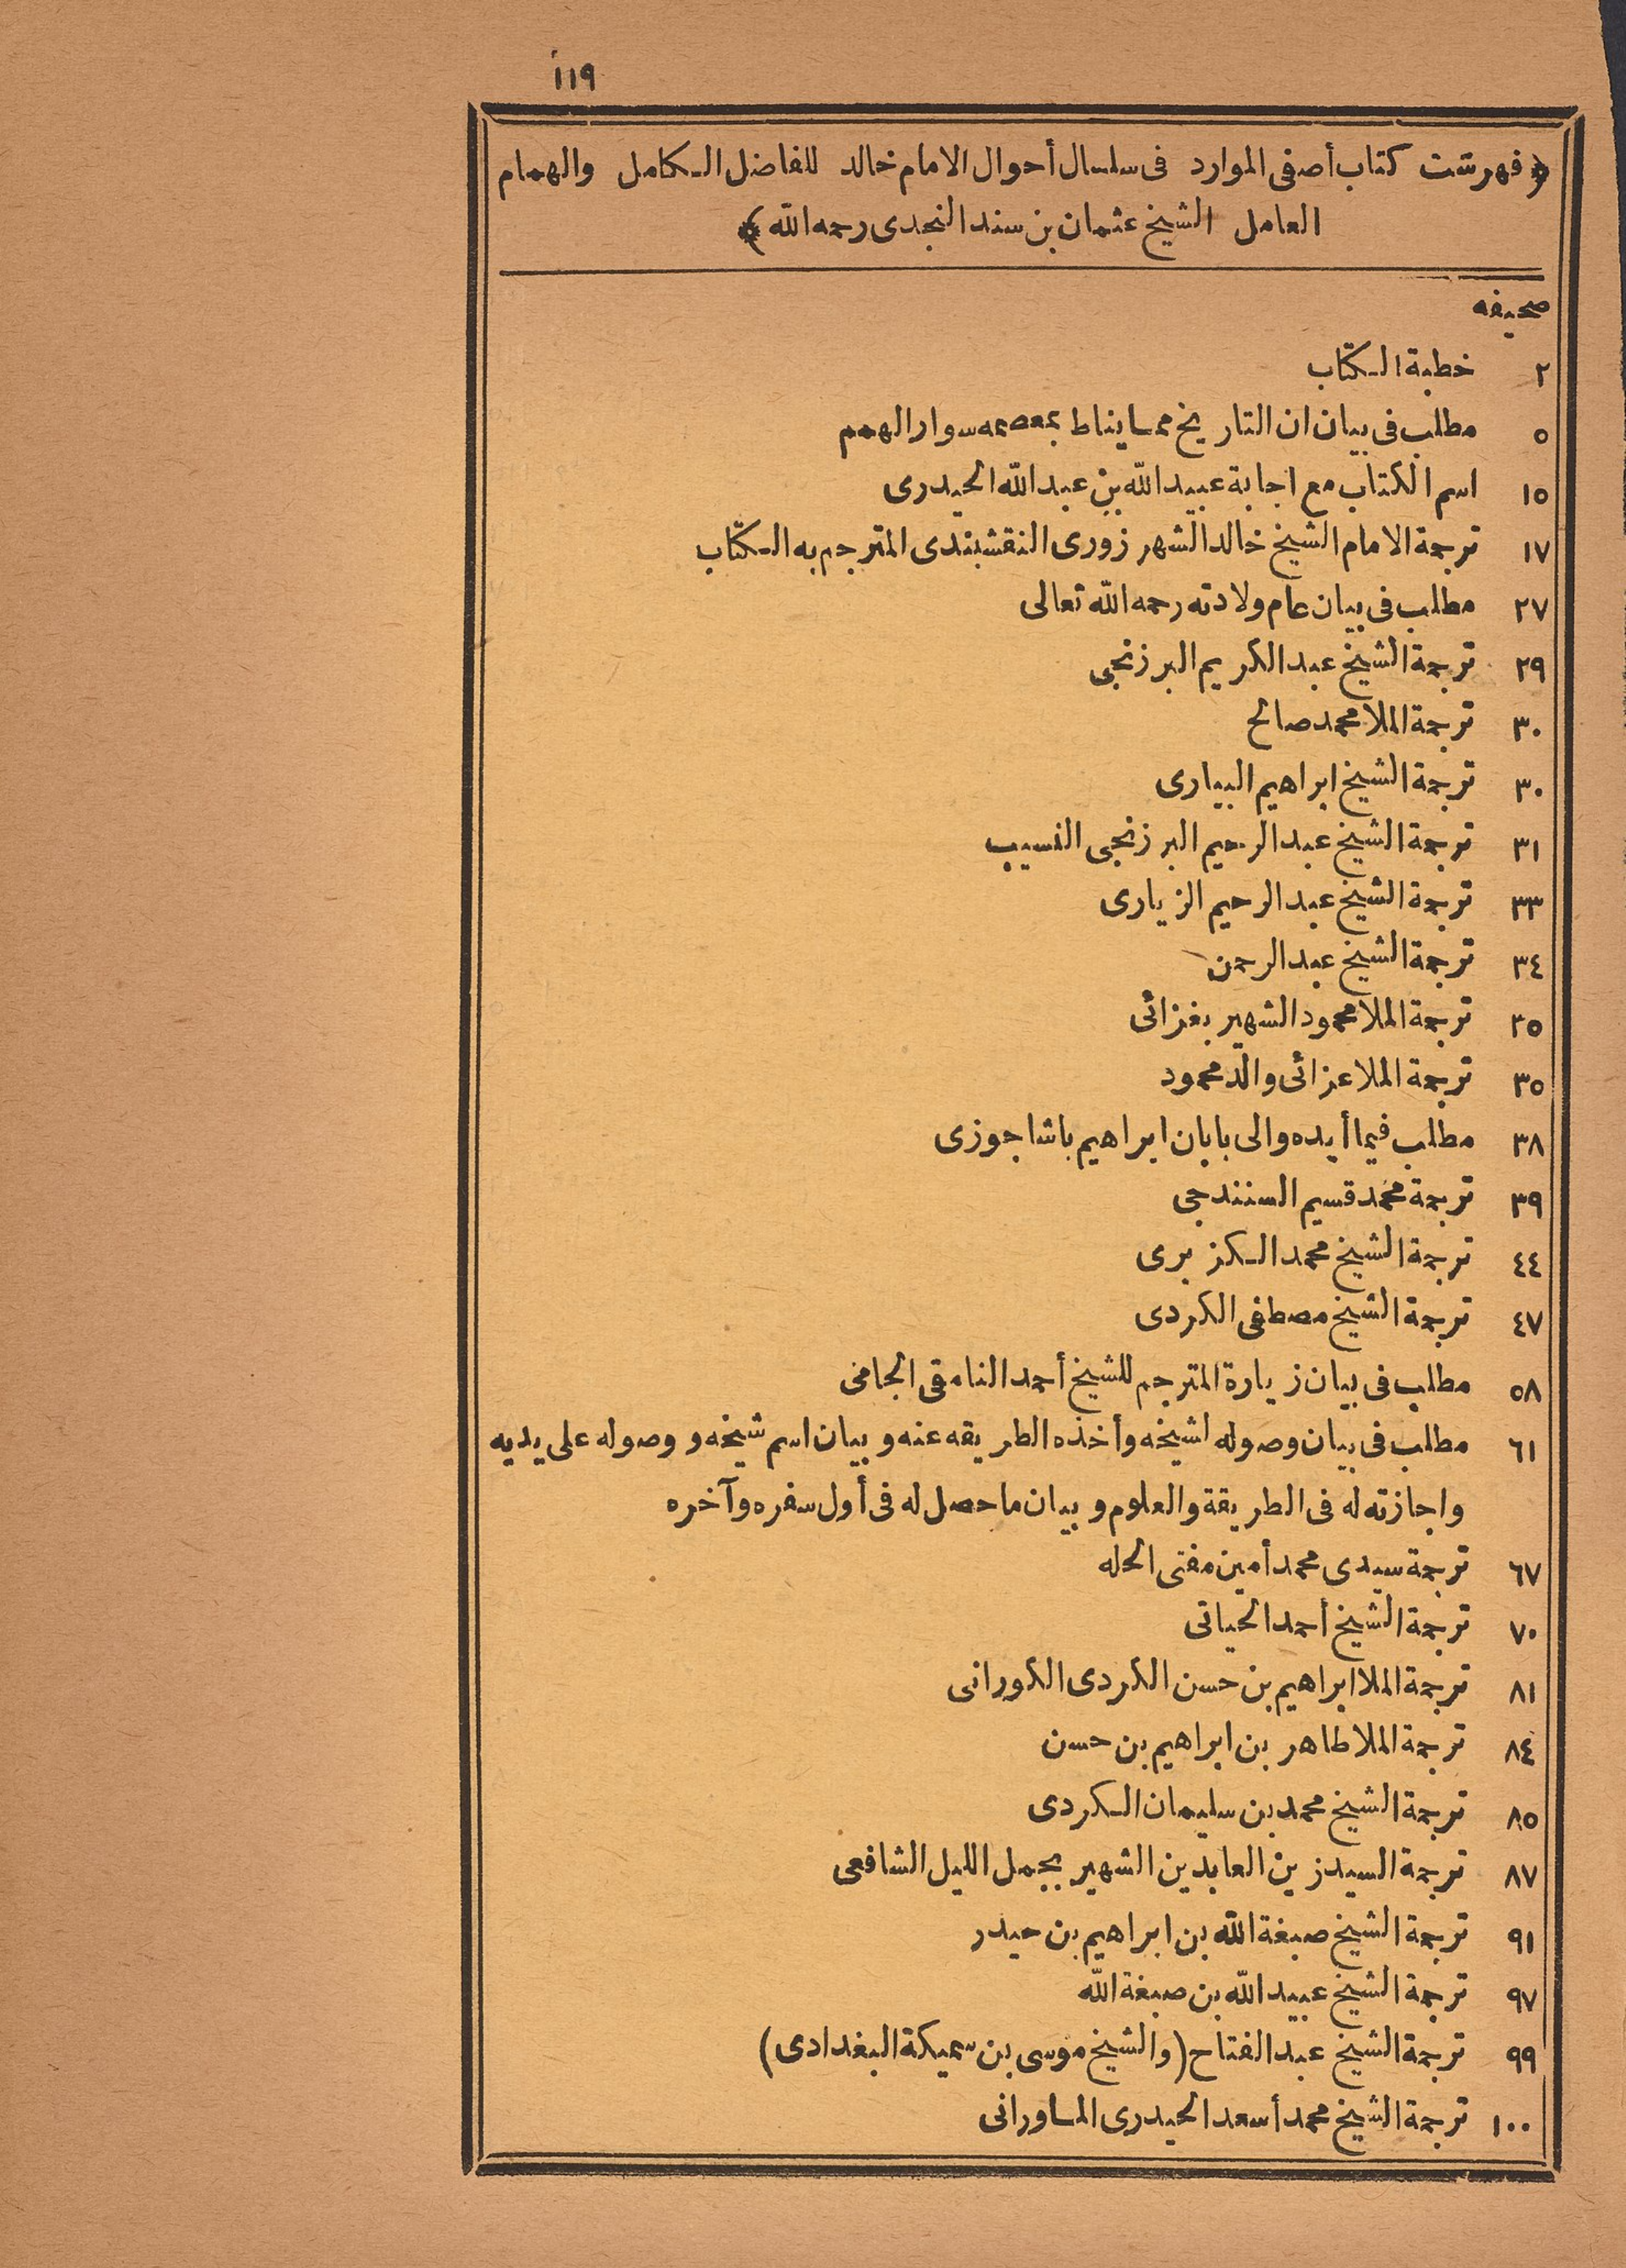 ١١٩أ
﴿فهرست كتاب أصفى الموارد فى سلسال أحوال الامام خالد للفاضل الكامل والهمام
العامل الشيخ عثمان بن سند النجدى رحمه الله﴾
صحيفه
٢ خطبة الكتاب
٥ مطلب فى بيان ان التاريخ مما يناط بمعصمه سوار الهمم
١٥ اسم الكتاب مع اجابة عبيد الله بن عبد الله الحيدرى
١٧ ترجمة الامام الشيخ خالد الشهرزورى النقشبندى المترجم به الكتاب
٢٧ مطلب فى بيان عام ولادته رحمه الله تعالى
٢٩ ترجمة الشيخ عبد الكريم البرزنجى
٣٠ ترجمة الملا محمد صالح
٣٠ ترجمة الشيخ ابراهيم البيارى
٣١ ترجمة الشيخ عبد الرحيم البرزنجى النسيب
٣٣ ترجمة الشيخ عبد الرحيم الزيارى
٣٤ ترجمة الشيخ عبد الرحمن
٣٥ ترجمة الملا محمود الشهير بغزائى
٣٥ ترجمة الملا عزائى والد محمود
٣٨ مطلب فيما أيده والى بابان ابراهيم باشا جوزى
٣٩ ترجمة محمد قسيم السنندجى
٤٤ ترجمة الشيخ محمد الكزبرى
٤٧ ترجمة الشيخ مصطفى الكردى
٥٨ مطلب فى بيان زيارة المترجم للشيخ أحمد النامقى الجامى
٦١ مطلب فى بيان وصوله لشيخه وأخذه الطريقه عنه وبيان اسم شيخه ووصوله على يديه
واجازته له فى الطريقة والعلوم وبيان ما حصل له فى أول سفره وآخره
٦٧ ترجمة سيدى محمد أمين مفتى الحله
٧٠ ترجمة الشيخ أحمد الحياتى
٨١ ترجمة الملا ابراهيم بن حسن الكردى الكورانى
٨٤ ترجمة الملا طاهر بن ابراهيم بن حسن
٨٥ ترجمة الشيخ محمد بن سليمان الكردى
٨٧ ترجمة السيد زين العابدين الشهير بجمل الليل الشافعى
٩١ ترجمة الشيخ صبغة الله بن ابراهيم بن حيدر
٩٧ ترجمة الشيخ عبيد الله بن صبغة الله
٩٩ ترجمة الشيخ عبد الفتاح (والشيخ موسى بن سميكة البغدادى)
١٠٠ ترجمة الشيخ محمد أسعد الحيدرى الماورانى